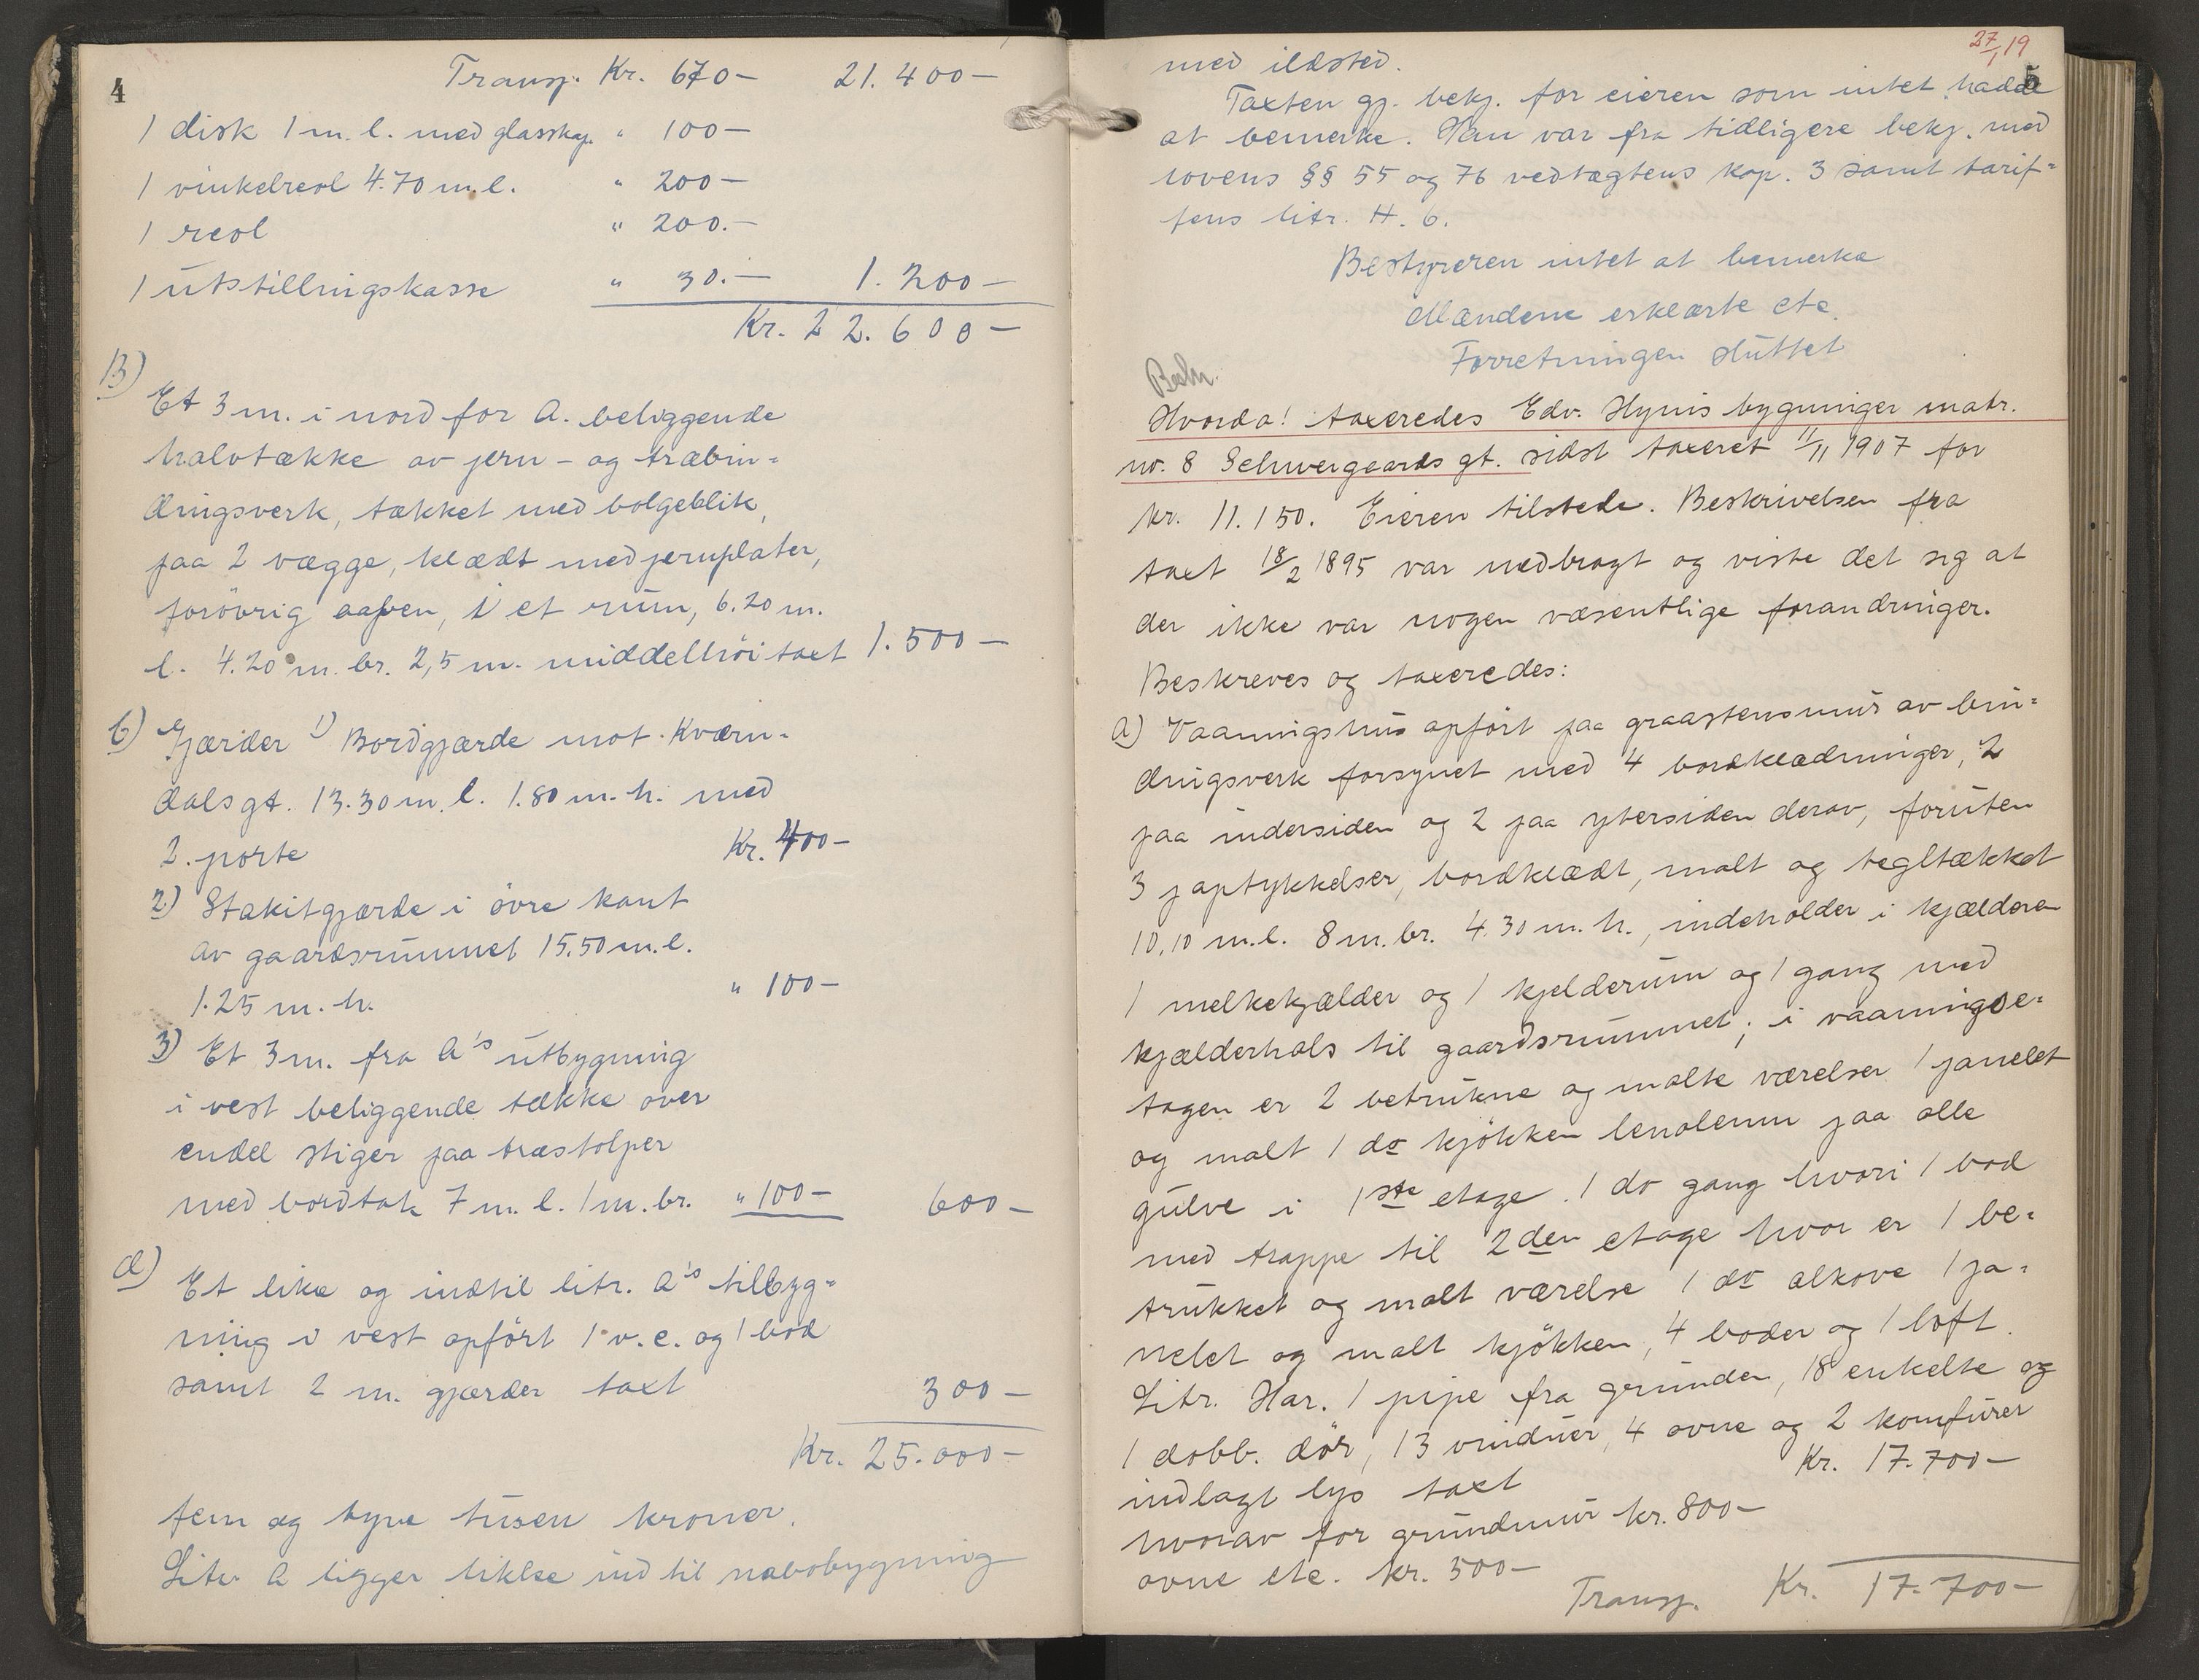 4
Transp. Kr. 670- 21.400-
1 disk 1 m. l. med glasskap. " 100-
1 vinkelreol 4.70 m. l. " 200-
1 reol " 200.-
1 utstillingskasse " 30.- 1.200-
Kr. 22.600-
B)
Et 3 m. i nord for A. beliggende
halvtække av jern- og træbin=
dingsverk, tækket med bølgeblik,
paa 2 vægge, klædt med jernplater,
forövrig aapen, i et rum, 6.20 m.
l. 4.20 m. br. 2,5 m. middelhöi taxt 1.500-
C) Gjærder 1) Bordgjærde mot Kværn-
dalsgt. 13.30 m. l. 1.80 m. h. med
2. porte Kr. 400-
2) Stakitgjærde i övre kant
av gaardsrummet 15.50 m. l.
1.25 m. h. " 100-
3) Et 3 m. fra A's utbygning
i vest beliggende tække over
endel stiger paa træstolper
med bordtak 7 m. l. 1 m. br. " 100- 600-
d)
Et like og indtil litr. A's tilbyg=
ning i vest opfört 1 v.c. og 1 bod
samt 2 m. gjærder taxt 300-
Kr. 25.000-
fem og tyve tusen kroner.
Litr A ligger likke ind til nabobygning
27/19
5
med ildsted.
Taxten gj. bekj. for eieren som intet hadde
at bemerke. Han var fra tidligere bekj. med
lovens §§ 55 og 76 vedtægtens kap. 3 samt tarif=
fens litr. H. 6.
Bestyreren intet at bemerke
Mændene erklærte etc.
Forretningen sluttet
Hvorda! taxeredes Edv. Hynis bygninger matr.
nr. 8 Schweigaards gt. sidst taxeret 11/11 1907 for
kr. 11.150. Eieren tilstede. Beskrivelsen fra
taxt 18/2 1895 var medbragt og viste det sig at
der ikke var nogen væsentlige forandringer.
Beskreves og taxeredes:
a) Vaaningshus opfört paa graastensmur av bin=
dingsverk forsynet med 4 bordklædninger, 2
paa indersiden og 2 paa ytersiden derav, foruten
3 paptykkelser, bordklædt, malt og tegltækket
10,10 m. l. 8 m. br. 4.30 m. h., indeholder i kjælderen
1 melkekjælder og 1 kjelderum og 1 gang med
kjælderhals til gaardsrummet; i vaaningse=
tagen er 2 betrukne og malte værelser 1 panelet
og malt 1 do kjökken lenoleum paa alle
gulve i 1ste etage. 1 do gang hvori 1 bod
med trappe til 2den etage hvor er 1 be=
trukket og malt værelse 1 do alkove 1 pa=
nelet og malt kjökken, 4 boder og 1 loft.
Litr. Har. 1 pipe fra grunden, 18 enkelte og
1 dobb. dör, 13 vinduer, 4 ovne og 2 komfurer
indlagt lys taxt Kr. 17.700-
hvorav for grundmur kr. 800-
ovne etc. kr. 500-
Transp. Kr. 17.700-